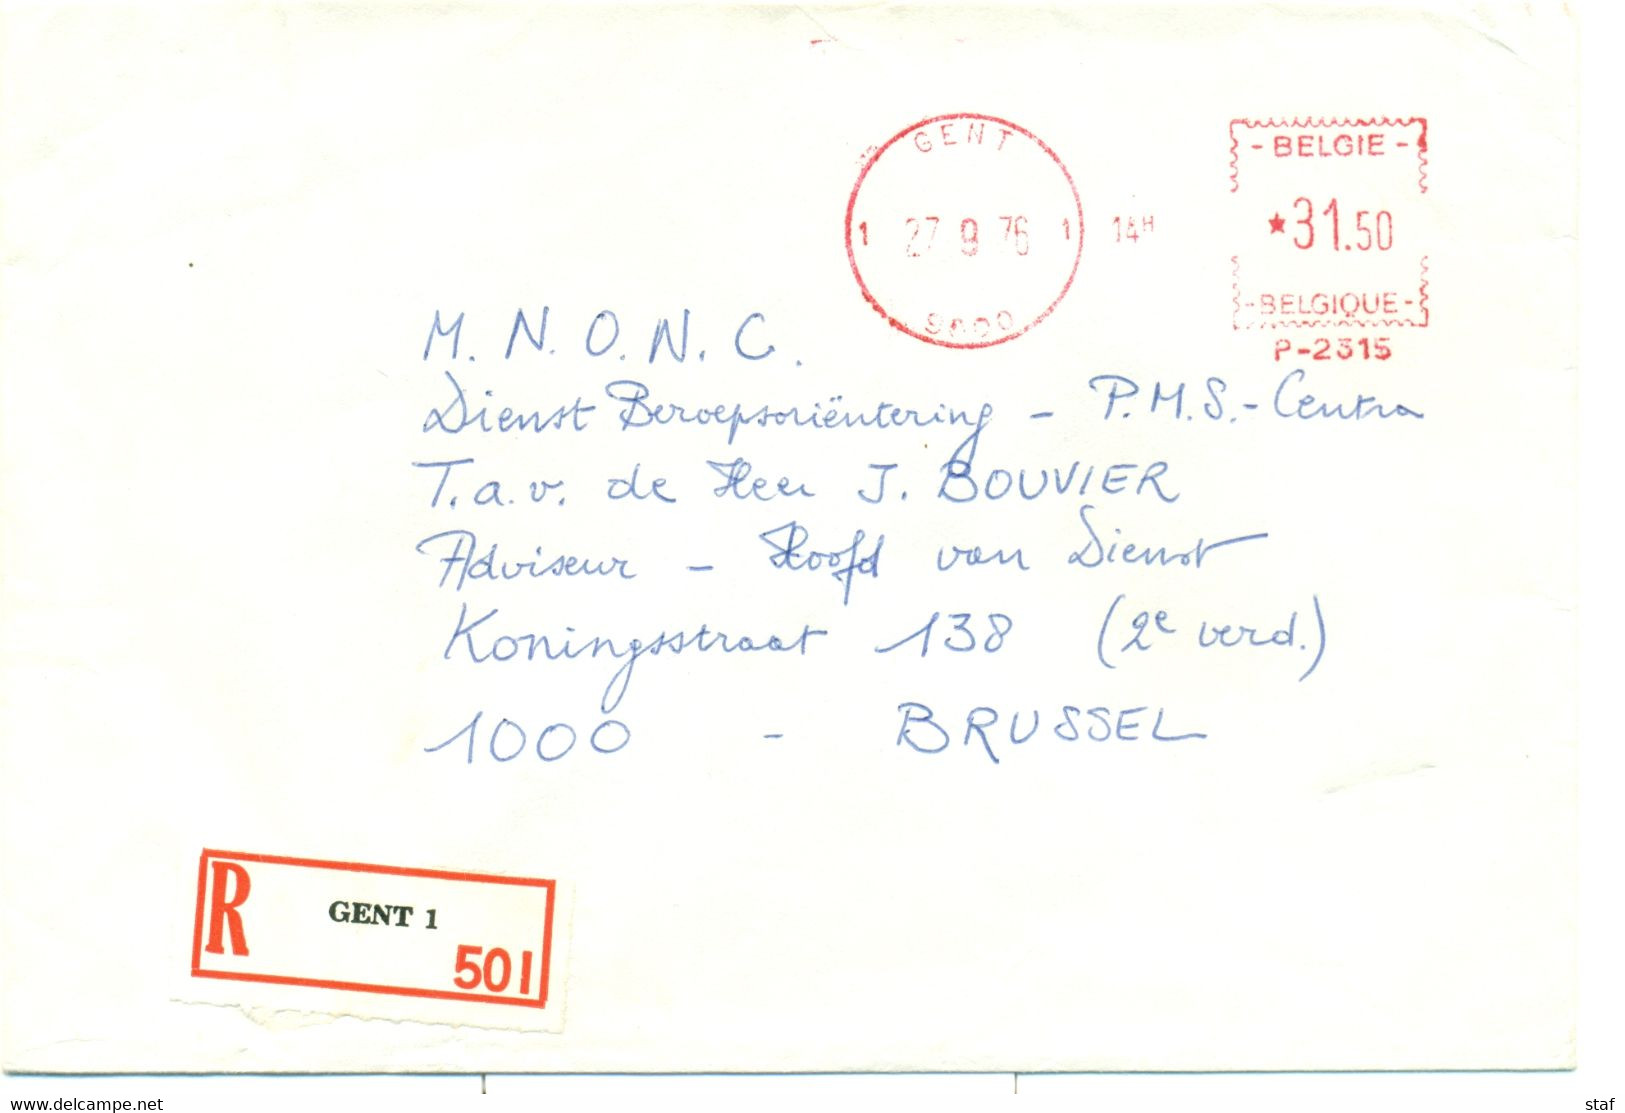 GENT
1 27 9 76 1 14H
9000
- BELGIE -
*31.50
- BELGIQUE -
P-2315
M. N. O. N. C.
Dienst Beroepsoriëntering - P.M.S.-Centra
T.a.v. de Heer J. BOUVIER
Adviseur - Hoofd van Dienst
Koningsstraat 138 (2e verd.)
1000 - BRUSSEL
R GENT 1
501
www.delcampe.net
staf